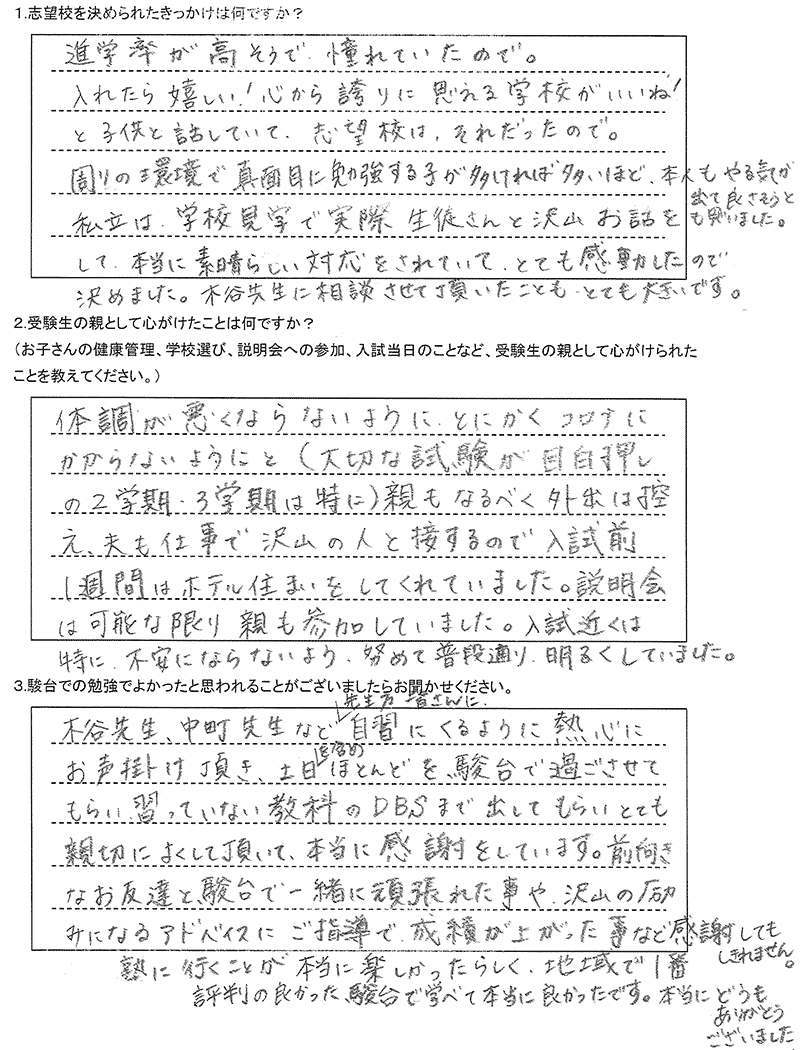 1.志望校を決められたきっかけは何ですか？
進学率が高そうで、憧れていたので。
入れたら嬉しい！心から誇りに思える学校がいいね！
と子供と話していて、志望校は、それだったので。
周りの環境で真面目に勉強する子が多ければ多いほど、本人もやる気が
出て良さそうと
も思いました。
私立は、学校見学で実際生徒さんと沢山お話を
して、本当に素晴らしい対応をされていて、とても感動したので
決めました。木谷先生に相談させて頂いたことも、とても大きいです。
2.受験生の親として心がけたことは何ですか？
（お子さんの健康管理、学校選び、説明会への参加、入試当日のことなど、受験生の親として心がけられた
ことを教えてください。）
体調が悪くならないように、とにかくコロナに
かからないようにと（大切な試験が目白押し
の2学期・3学期は特に）親もなるべく外出は控
え、夫も仕事で沢山の人と接するので入試前
1週間はホテル住まいをしてくれていました。説明会
は可能な限り親も参加していました。入試近くは
特に、不安にならないよう、努めて普段通り、明るくしていました。
3.駿台での勉強でよかったと思われることがございましたらお聞かせください。
先生方皆さんに、
木谷先生、中町先生など自習にくるように熱心に
お声掛け頂き、土日を含めほとんどを、駿台で過ごさせて
もらい、習っていない教科のDBSまで出してもらいとても
親切によくして頂いて、本当に感謝をしています。前向き
なお友達と、駿台で一緒に頑張れた事や、沢山の励
みになるアドバイスにご指導で、成績が上がった事など感謝しても
しきれません。
塾に行くことが本当に楽しかったらしく、地域で1番
評判の良かった、駿台で学べて本当に良かったです。本当にどうも
ありがとう
ございました